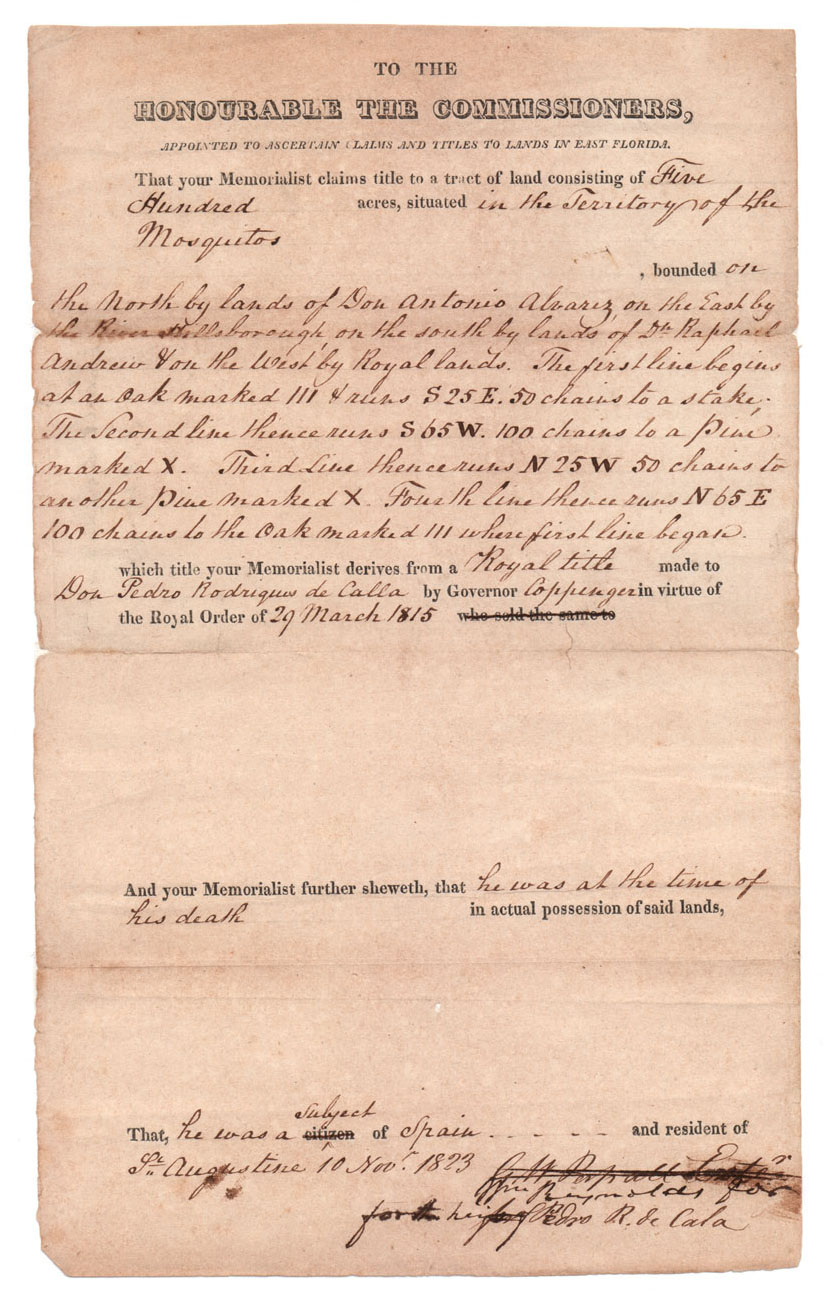 TO THE
HONOURABLE THE COMMISSIONERS,
APPOINTED TO ASCERTAIN CLAIMS AND TITLES TO LANDS IN EAST FLORIDA.
That your Memorialist claims title to a tract of land consisting of Five
Hundred acres, situated in the Territory of the
Mosquitos
, bounded on
the North by lands of Don Antonio Alvarez on the East by
the River Hillsborough, on the south by lands of Dn Raphael
Andrew & on the West by Royal lands. The first line begins
at an Oak marked 111 & runs S 25 E. 50 chains to a stake;
The Second line thence runs S 65 W. 100 chains to a Pine
marked X. Third Line thence runs N 25 W 50 chains to
another Pine marked X. Fourth line thence runs N 65 E
100 chains to the Oak marked 111 where first line began.
which title your Memorialist derives from a Royal title made to
Don Pedro Rodrigues de Calla by Governor Coppenger in virtue of
the Royal Order of 29 March 1815 who sold the same to
And your Memorialist further sheweth, that he was at the time of
his death in actual possession of said lands,
Subject
That, he was a citizen of Spain - - - - - and resident of
St. Augustine 10 Novr. 1823
Reynolds for
for the heirs of Pedro R. de Cala